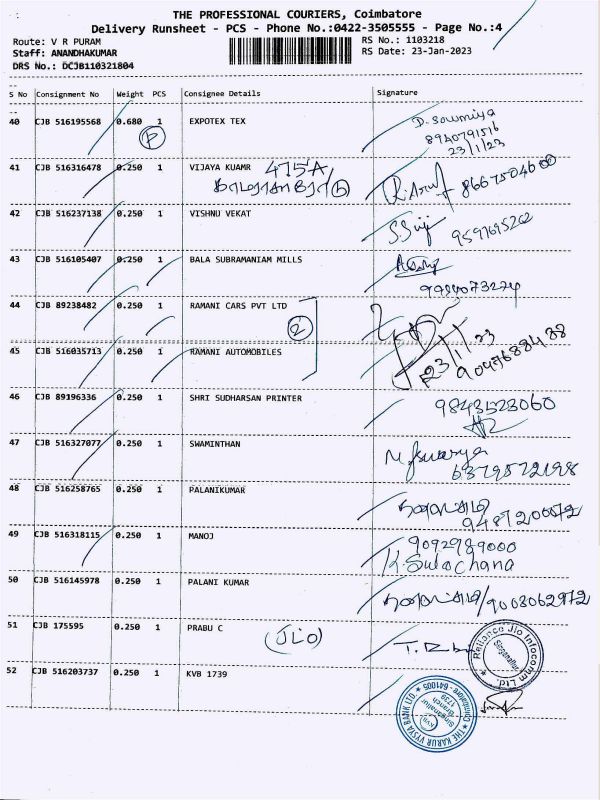 THE PROFESSIONAL COURIERS, Coimbatore
Delivery Runsheet - PCS - Phone No.:0422-3505555 - Page No.:4
Route: V R PURAM
RS No.: 1103218
Staff: ANANDHAKUMAR
RS Date: 23-Jan-2023
DRS No.: DCJB110321804
S No Consignment No Weight PCS Consignee Details Signature
40 CJB 516195568 0.680 1 EXPOTEX TEX D. Sowmiya
P 8940791516
23/1/23
41 CJB 516316478 0.250 1 VIJAYA KUAMR 475A, 8667504600
42 CJB 516237138 0.250 1 VISHNU VEKAT S.Suji 9597695262
43 CJB 516105407 0.250 1 BALA SUBRAMANIAM MILLS
44 CJB 89238482 0.250 1 RAMANI CARS PVT LTD
2 23/1/23
45 CJB 516035713 0.250 1 RAMANI AUTOMOBILES 9047688438
46 CJB 89196336 0.250 1 SHRI SUDHARSAN PRINTER 9843523060
47 CJB 516327077 0.250 1 SWAMINTHAN
6379572198
48 CJB 516258765 0.250 1 PALANIKUMAR
9487200072
49 CJB 516318115 0.250 1 MANOJ 9092989000
K. Sulochana
50 CJB 516145978 0.250 1 PALANI KUMAR /9003062972
51 CJB 175595 0.250 1 PRABU C (JIO)
Reliance Jio Infocomm Ltd.
Singanallur
52 CJB 516203737 0.250 1 KVB 1739
THE KARUR VYSYA BANK LTD.
Coimbatore - 641005
Singanallur
Branch
1739
KVB